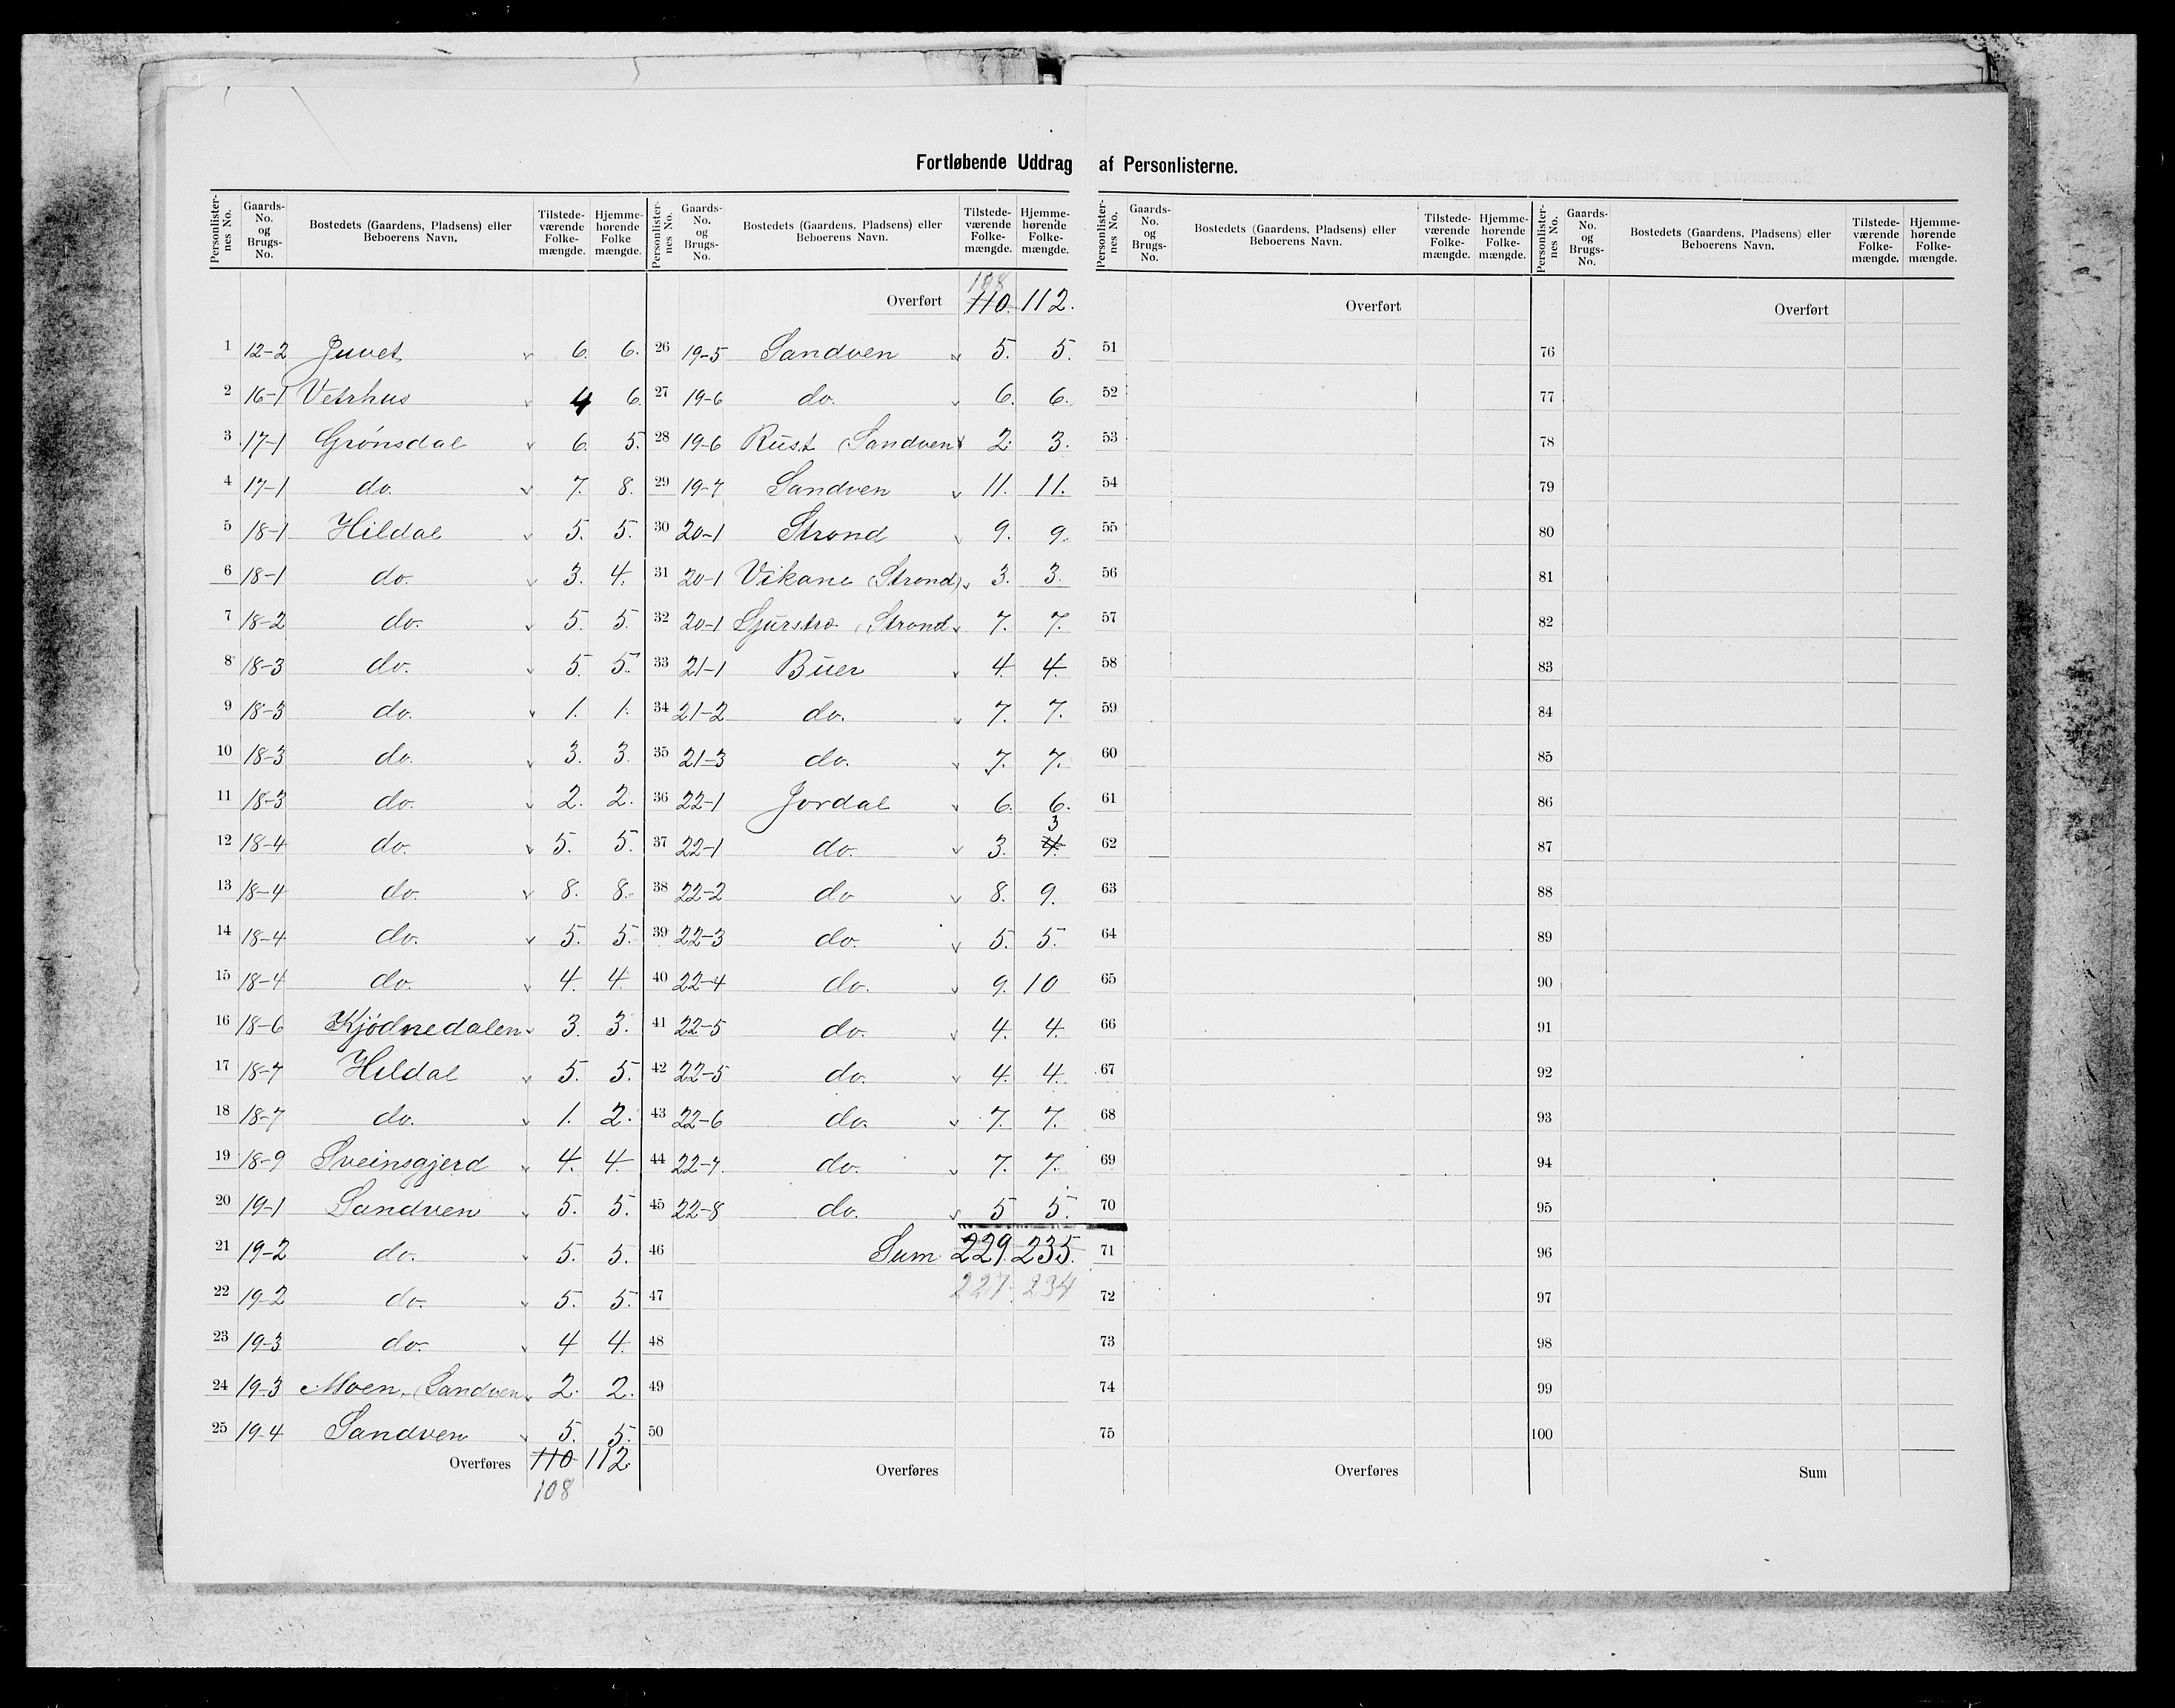 Fortløbende Uddrag af Personlisterne.
Personlister-nes No. Gaards-No. og Brugs-No. Bostedets (Gaardens, Pladsens) eller Beboerens Navn. Tilstede-værende Folke-mængde. Hjemme-hørende Folke mængde.
1 12-2 Juvet v 6. 6.
2 16-1 Vetrhus v 4 6.
3 17-1 Grønsdal v 6. 5.
4 17-1 do. v 7. 8.
5 18-1 Hildal v 5. 5.
6 18-1 do. v 3. 4.
7 18-2 do. v 5. 5.
8 18-3 do. v 5. 5.
9 18-3 do. v 1. 1.
10 18-3 do. v 3. 3.
11 18-3 do. v 2. 2.
12 18-4 do. v 5. 5.
13 18-4 do. v 8. 8.
14 18-4 do. v 5. 5.
15 18-4 do. v 4. 4.
16 18-6 Kjødnedalen v 3. 3.
17 18-7 Hildal v 5. 5.
18 18-7 do. v 1. 2.
19 18-9 Sveinsgjerd v 4. 4.
20 19-1 Sandven v 5. 5.
21 19-2 do. v 5. 5.
22 19-2 do. v 5. 5.
23 19-3 do. v 4 4.
24 19-3 Moen (Sandven v 2. 2.
25 19-4 Sandven v 5. 5.
Overføres 110 112.
108
Personlister-nes No. Gaards-No. og Brugs-No. Bostedets (Gaardens, Pladsens) eller Beboerens Navn. Tilstede-værende Folke-mængde. Hjemme-hørende Folke-mængde.
108
Overført 110. 112.
26 19-5 Sandven v 5. 5.
27 19-6 do. v 6. 6.
28 19-6 Rust (Sandven) v 2. 3.
29 19-7 Sandven v 11. 11.
30 20-1 Strond v 9. 9.
31 20-1 Vikane (Strond) v 3. 3.
32 20-1 Sjurstro (Strond v 7. 7.
33 21-1 Buer v 4. 4.
34 21-2 do. v 7. 7.
35 21-3 do. v 7. 7.
36 22-1 Jordal v 6. 6.
3
37 22-1 do. v 3. 4.
38 22-2 do v 8. 9.
39 22-3 do. v 5. 5.
40 22-4 do. v 9. 10
41 22-5 do. v 4. 4.
42 22-5 do. v 4. 4.
43 22-6 do. v 7. 7.
44 22-7. do. v 7. 7.
45 22-8 do. v 5 5.
46 Sum 229. 235.
47 227. 234
48
49
50
Overføres
Personlister-nes No. Gaards-No. og Brugs-No. Bostedets (Gaardens, Pladsens) eller Beboerens Navn. Tilstede-værende Folke-mængde. Hjemme-hørende Folke-mængde.
Overført
51
52
53
54
55
56
57
58
59
60
61
62
63
64
65
66
67
68
69
70
71
72
73
74
75
Overføres
Personlister-nes No. Gaards-No. og Brugs-No. Bostedets (Gaardens, Pladsens) eller Beboerens Navn. Tilstede-værende Folke-mængde. Hjemme-hørende Folke-mængde.
Overført
76
77
78
79
80
81
82
83
84
85
86
87
88
89
90
91
92
93
94
95
96
97
98
99
100
Sum